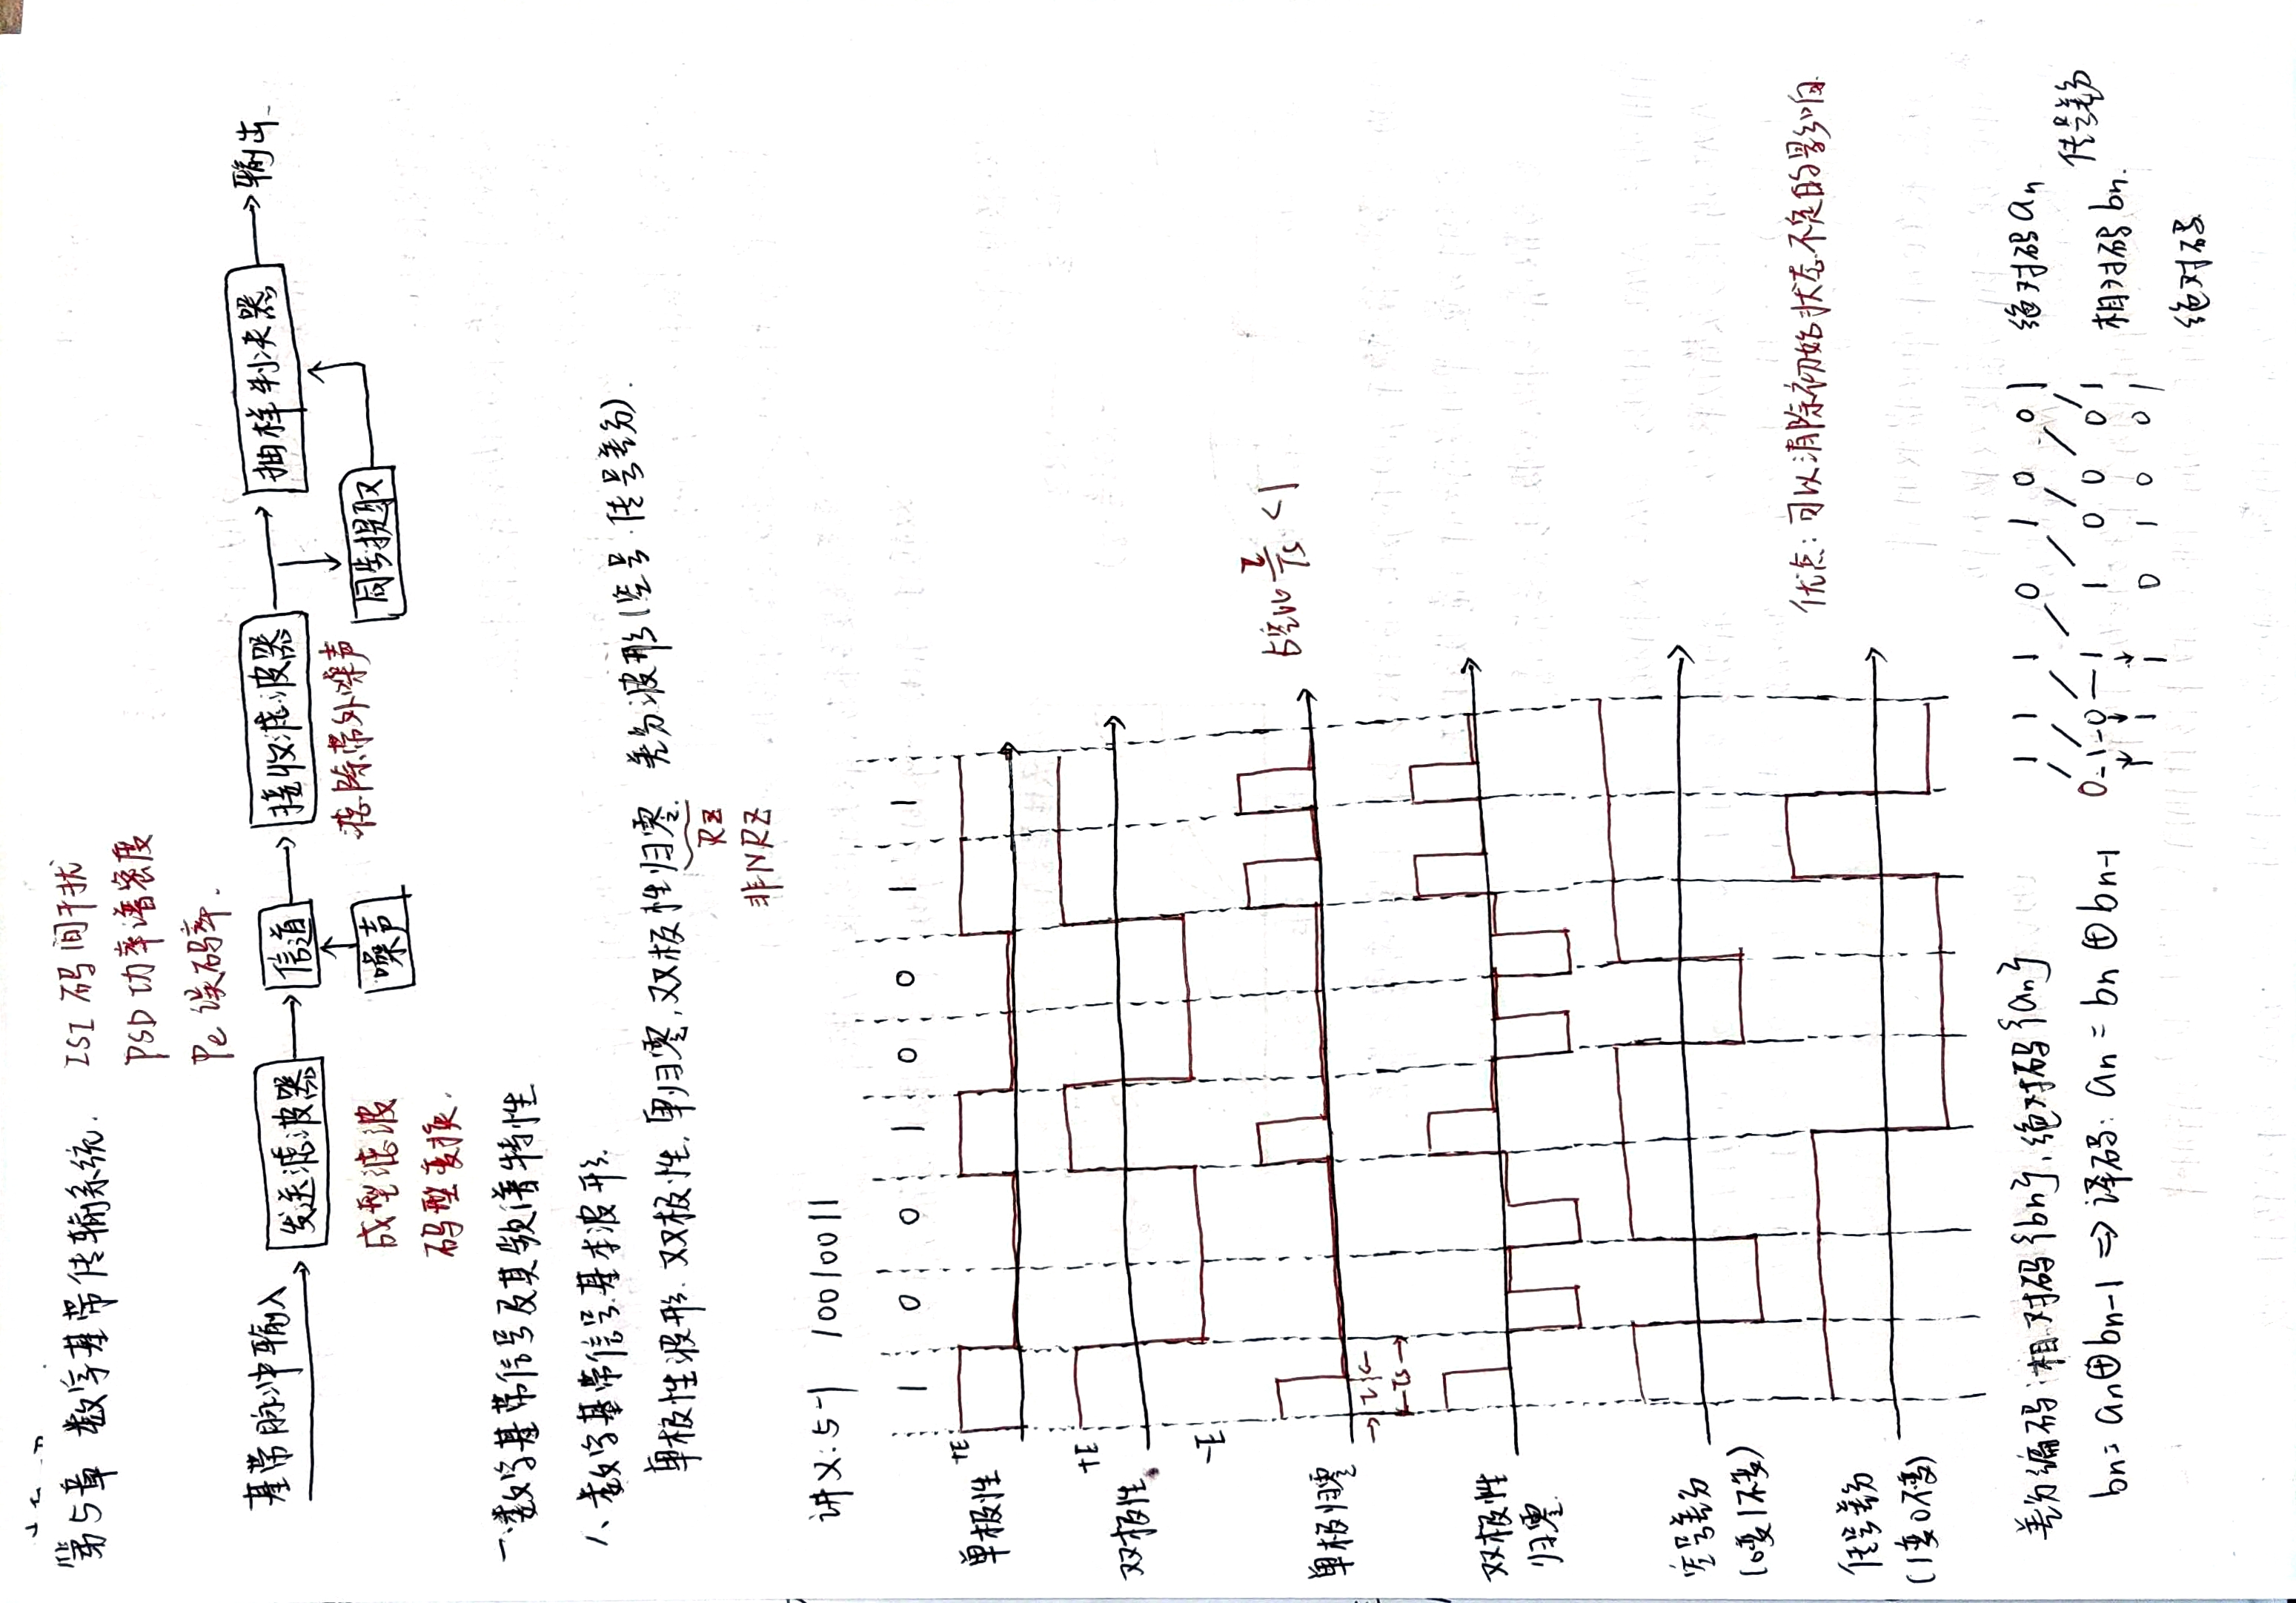 第5章 数字基带传输系统. ISI 码间干扰
PSD 功率谱密度
Pe 误码率.
基带脉冲输入 发送滤波器 信道 接收滤波器 抽样判决器 输出
成型滤波 噪声 滤除带外噪声 同步提取
码型变换.
一.数字基带信号及其频谱特性
1、数字基带信号基本波形.
单极性波形. 双极性, 单归零, 双极性归零. 差分波形(空号.传号差分).
RZ
非NRZ
讲义: 5-1 10010011
1 0 0 1 0 0 1 1
单极性 +E
双极性 +E
-E
单极归零 占空比 τ/Ts <1
τ
Ts
双极性
归零
空号差分
(0变1不变)
优点: 可以消除初始状态不定的影响
传号差分
(1变0不变)
差分编码:相对码{bn}, 绝对码{an} 1 1 1 0 1 0 0 1 绝对码 an
bn= an⊕bn-1 ⇒ 译码: an = bn ⊕ bn-1 0-1-0-1 1 0 0 0 1 相对码 bn. 传号差分
1 1 1 0 1 0 0 1 绝对码